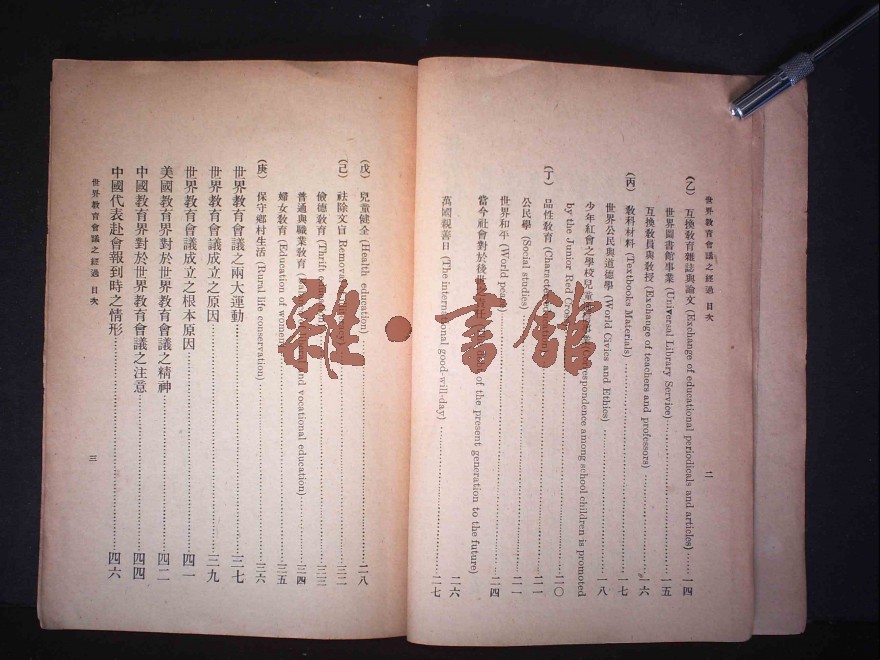 世界教育會議之經過 目次
二
(乙) 互換教育雜誌與論文 (Exchange of educational periodicals and articles) 一四
世界圖書館事業 (Universal Library Service) 一五
互換教員與敎授 (Exchange of teachers and professors) 一六
(丙) 敎科材料 (Textbooks Materials) 一七
世界公民與道德學 (World Civics and Ethics) 一八
少年紅會之學校兒童 correspondence among school children is promoted
by the Junior Red Cross 二〇
(丁) 品性敎育 (Character 二一
公民學 (Social studies) 二一
世界和平 (World peace) 二四
當今社會對於後世 of the present generation to the future) 二六
萬國親善日 (The international good-will-day) 二七
(戊) 兒童健全 (Health education) 二八
(己) 祛除文盲 Removal 三二
儉德敎育 (Thrift 三三
普通與職業敎育 and vocational education) 三四
婦女敎育 (Education of women) 三五
(庚) 保守鄉村生活 (Rural life conservation) 三六
世界敎育會議之兩大運動 三七
世界敎育會議成立之原因 三九
世界敎育會議成立之根本原因 四一
美國敎育界對於世界敎育會議之精神 四二
中國敎育界對於世界敎育會議之注意 四四
中國代表赴會報到時之情形 四六
世界敎育會議之經過 目次
三
雜·書館